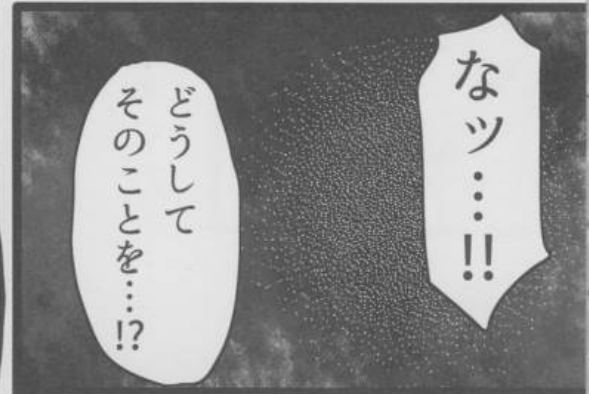 なッ…!!
どうして
そのことを…!?